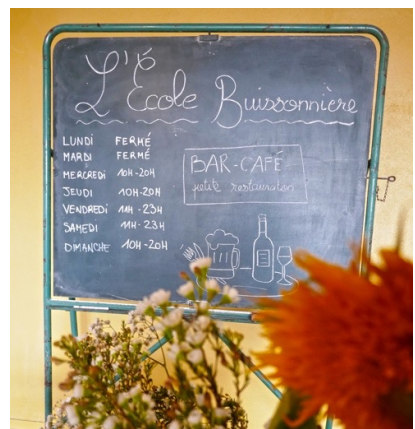 L'École Buissonnière
LUNDI FERMÉ
MARDI FERMÉ
MERCREDI 10H-20H
JEUDI 10H-20H
VENDREDI 11H-23H
SAMEDI 11H-23H
DIMANCHE 10H-20H
BAR-CAFÉ
petite restauration